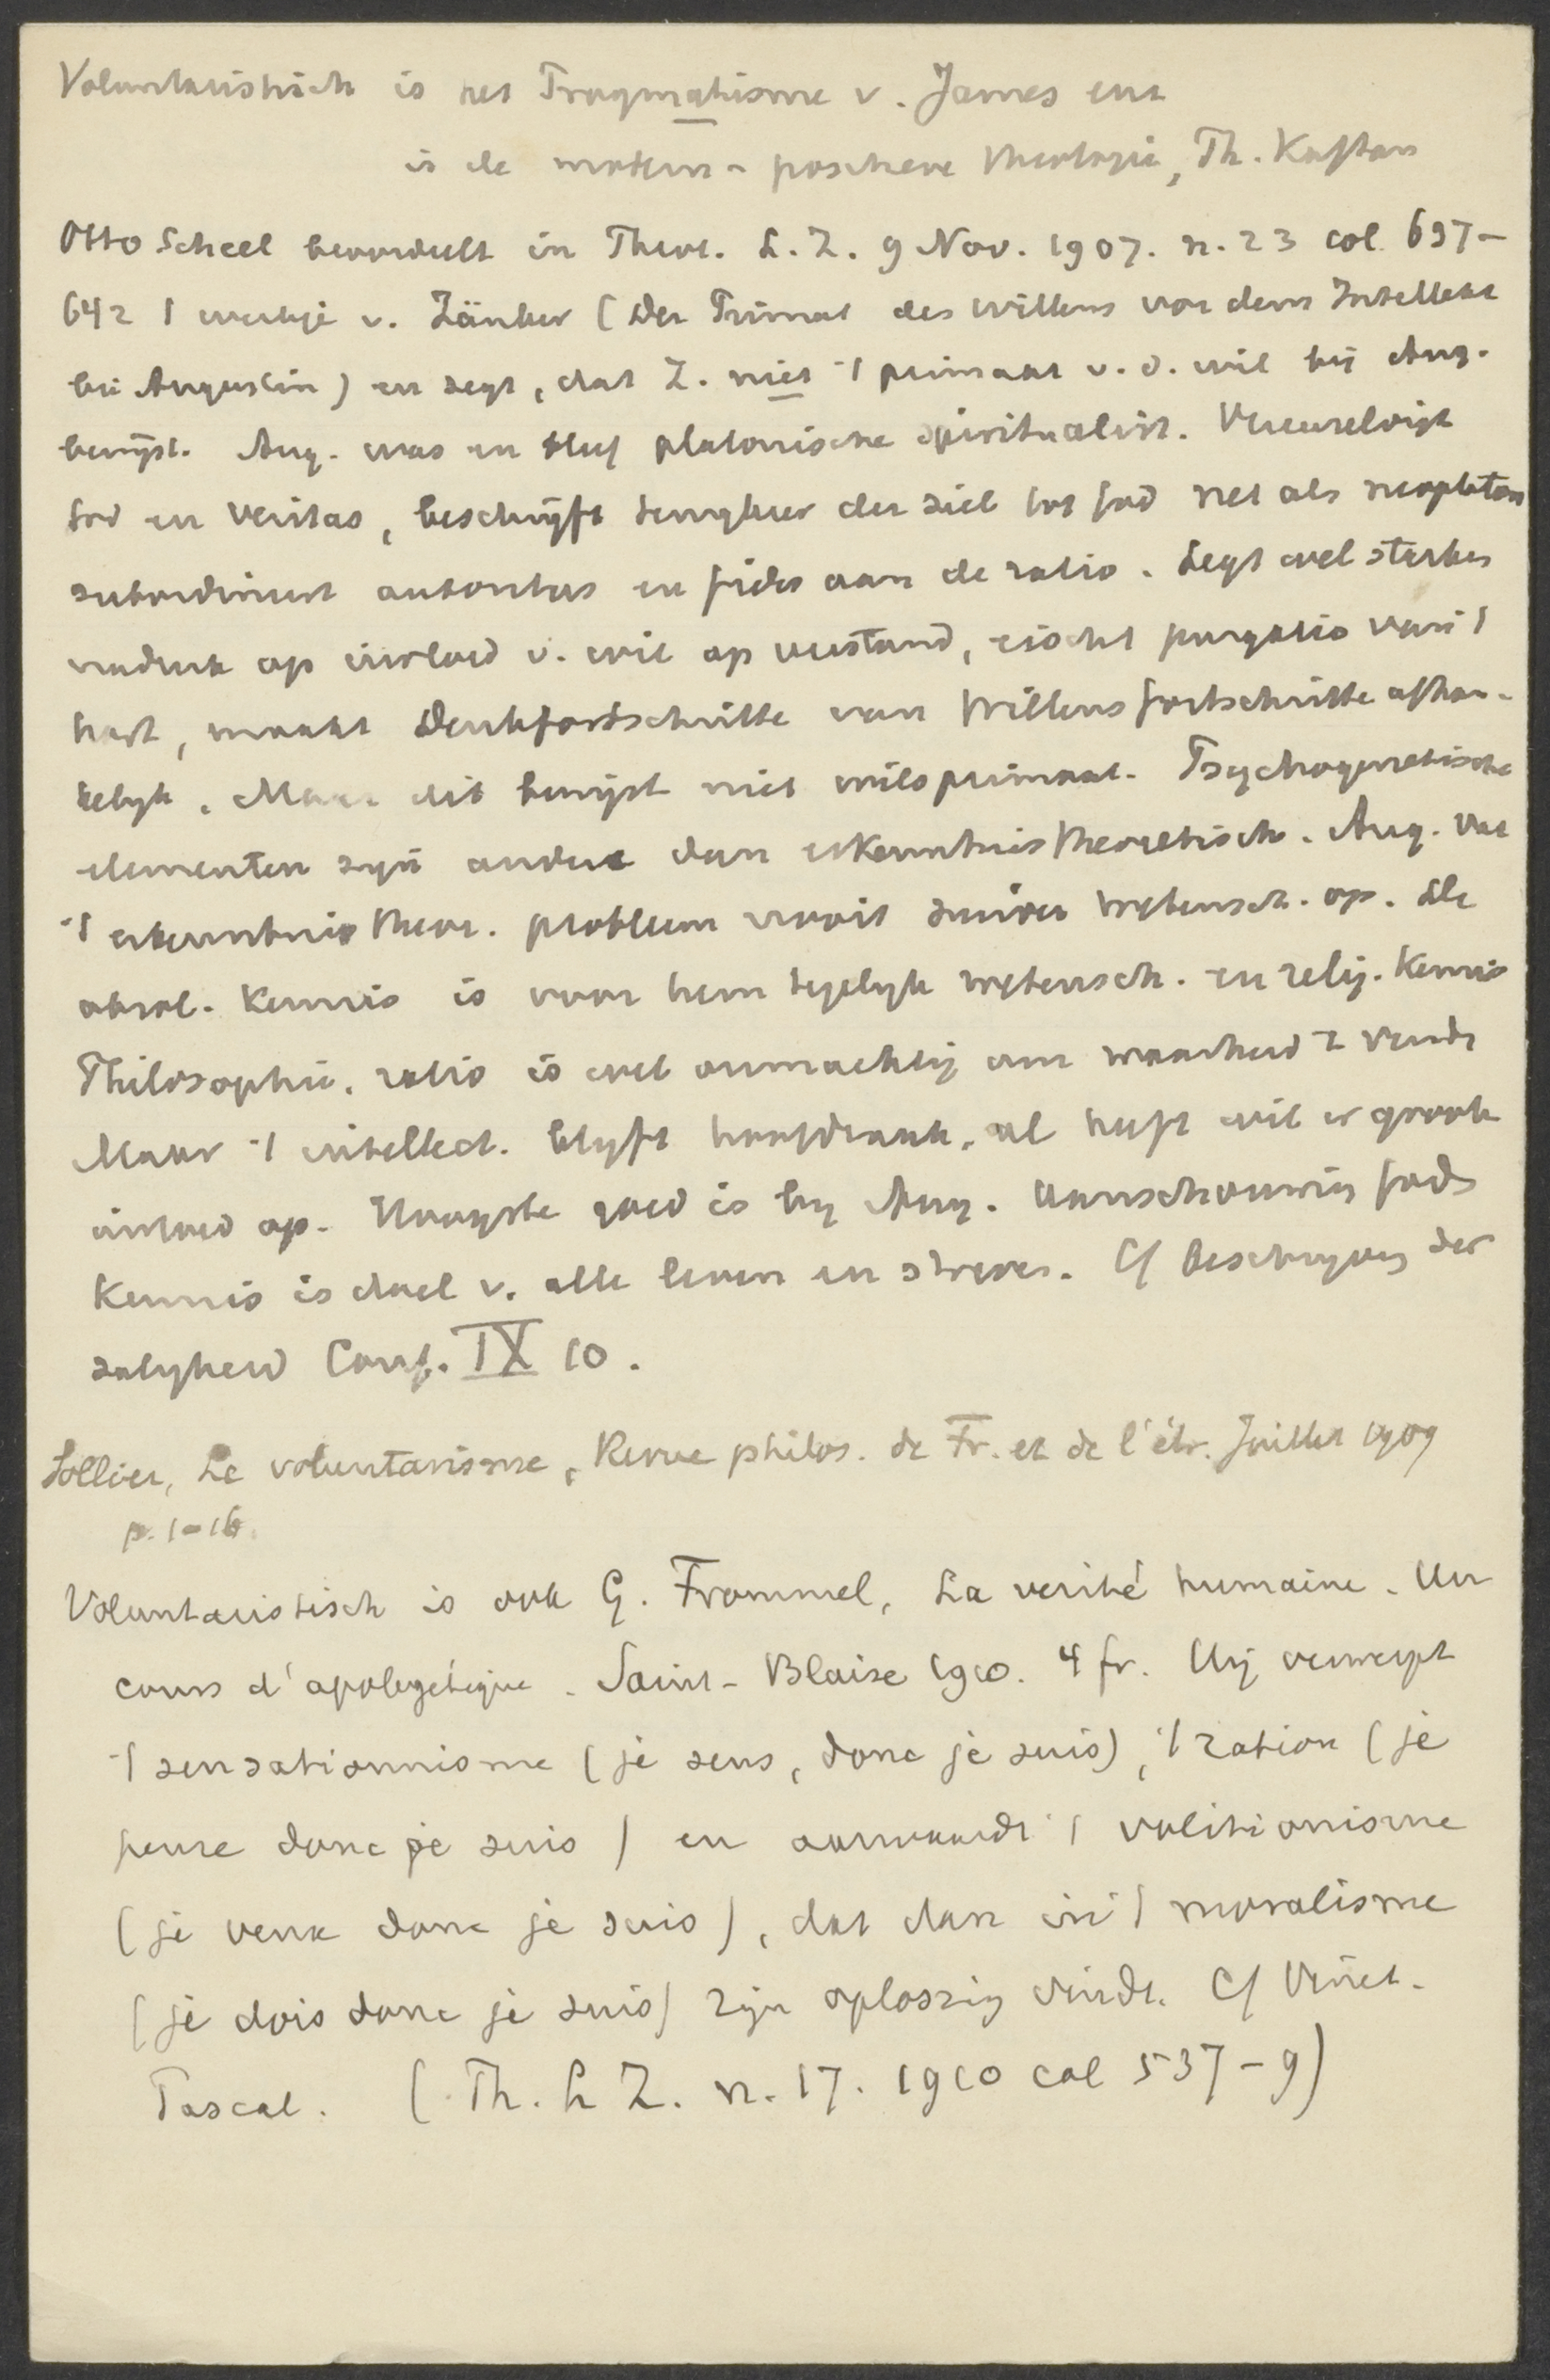 Voluntaristisch is het Pragmatisme v. James enz
is de modern-positieve theologie, Th. Kaftan
Otto Scheel beoordeelt in Theol. L. Z. 9 Nov. 1907. n. 23 col. 637-
642 't werkje v. Zänker (Der Primat des Willens vor dem Intellekt
bei Augustin) en zegt, dat Z. niet 't primaat v. d. wil bij Aug.
bewijst. Aug. was en bleef platonische spiritualist. Vereenzelvigt
God en veritas, beschrijft terugkeer der ziel tot God net als neoplaton
subordineert autoritas en fides aan de ratio. Legt wel sterken
nadruk op invloed v. wil op verstand, eischt purgatio van 't
hart, maakt Denkfortschritte van Willensfortschritte afhan-
kelijk. Maar dit bewijst niet wilsprimaat. Psychogenetische
elementen zijn andere dan erkenntnistheoretisch. Aug. vat
't erkenntnistheor. probleem nooit zuiver wetensch. op. De
absol. kennis is voor hem tegelijk wetensch. en relig. kennis
Philosophie, ratio is wel onmachtig om waarheid te vinde
Maar 't intellect. blijft hoofdzaak, al heeft wil er groote
invloed op. Hoogste goed is bij Aug. aanschouwing Gods
Kennis is doel v. alle leven en streven. Cf beschrijving der
zaligheid Conf. IX 10.
Sollier, Le voluntarisme, Revue philos. de Fr. et de l'étr. Juillet 1909
p. 1-16.
Voluntaristisch is ook G. Frommel, La verité humaine. Un
cours d'apologétique. Saint-Blaise 1910. 4 fr. Hij verwerpt
't sensationnisme (je sens, donc je suis), 't ration (je
pense donc je suis) en aanvaardt 't volitionisme
(je veux donc je suis), dat dan in 't moralisme
(je dois donc je suis) zijn oplossing vindt. Cf Vinet.
Pascal. (Th. L Z. n. 17. 1910 col 537-9)